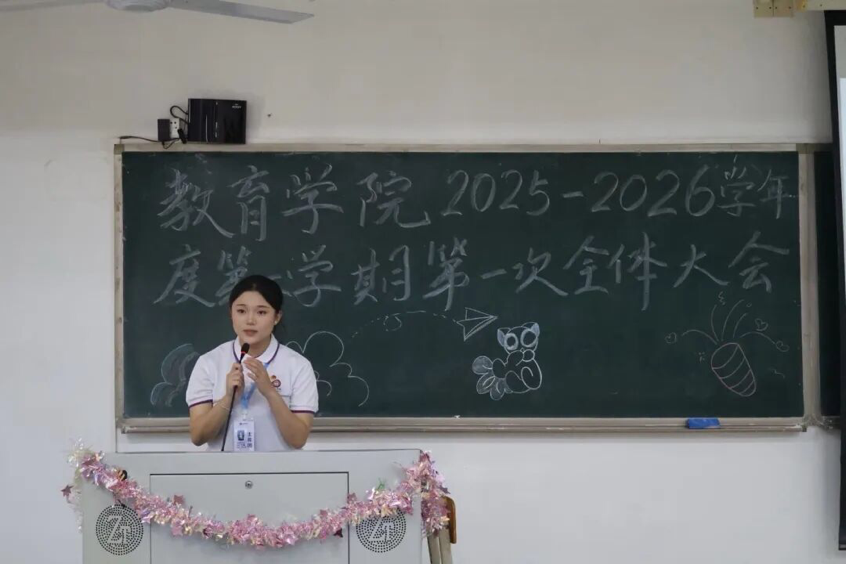 教育学院2025-2026学年
度第一学期第一次全体大会
ZT
ZT